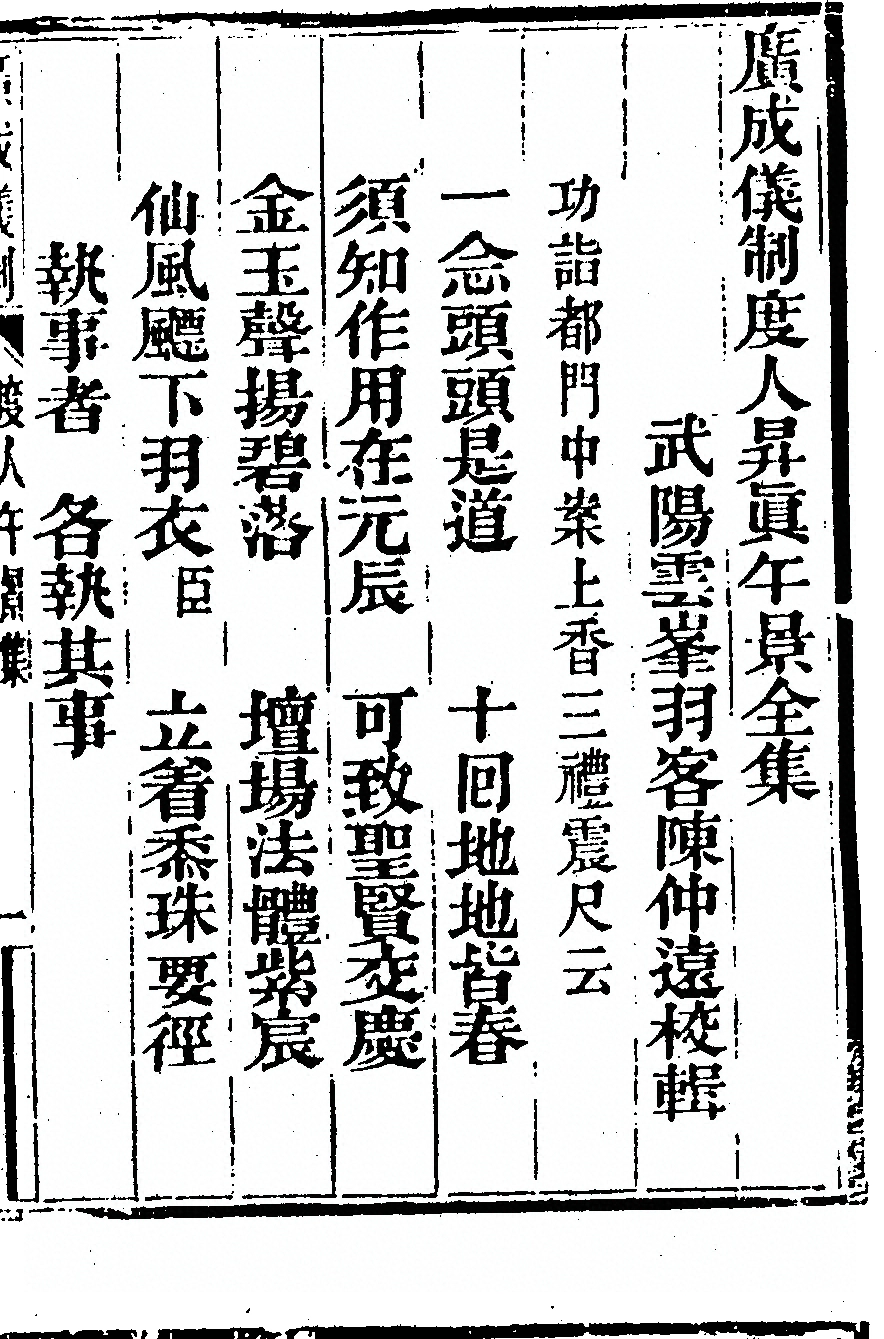 廣成儀制度人昇眞午景全集
武陽雲峯羽客陳仲遠校輯
功詣都門中案上香三禮震尺云
一念頭頭是道　十回地地皆春
須知作用在元辰　可致聖賢交慶
金玉聲揚碧落　壇場法體紫宸
仙風飄下羽衣臣　立着黍珠要徑
執事者　各執其事
廣成儀制　度人午景集　一